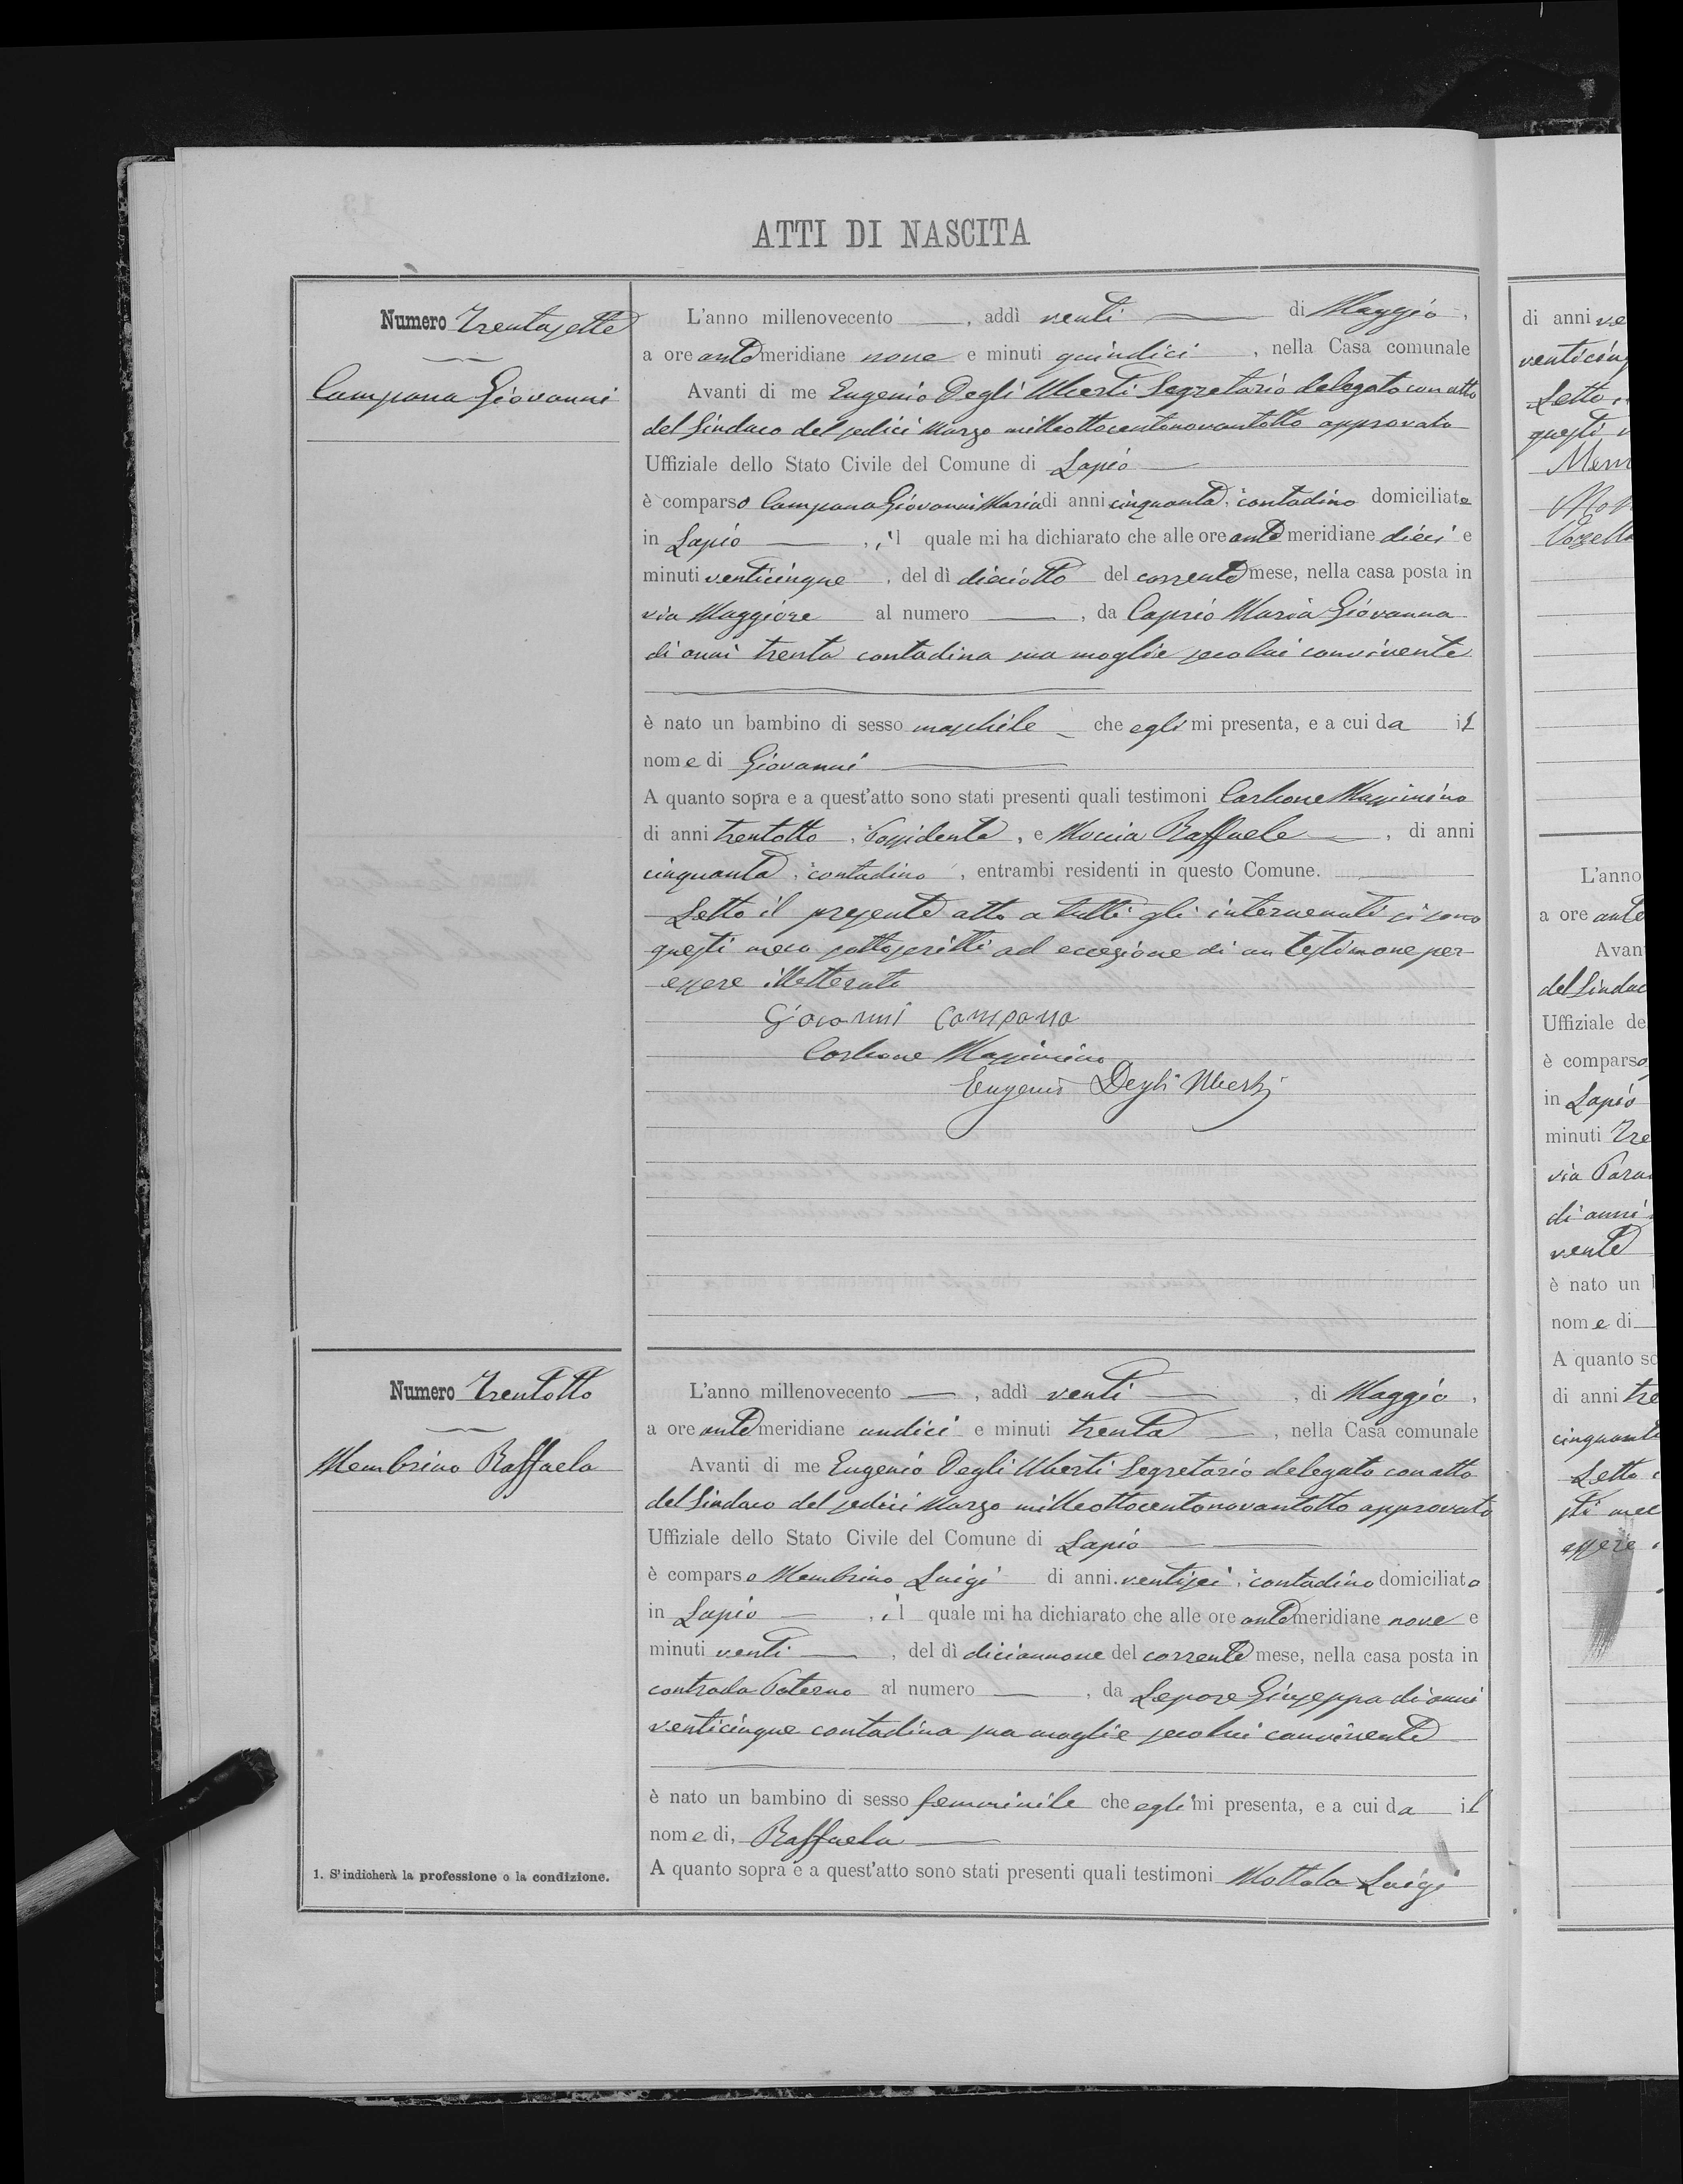 ATTI DI NASCITA
Numero Trentasette
Campana Giovanni
L'anno millenovecento, addì venti di Maggio,
a ore antemeridiane nove e minuti quindici, nella Casa comunale
Avanti di me Eugenio Degli Uberti Segretario delegato con atto
del Sindaco del sedici Marzo milleottocentonovantotto approvato
Uffiziale dello Stato Civile del Comune di Lapio
è comparso Campana Giovanni Maria di anni cinquanta, contadino domiciliato
in Lapio, il quale mi ha dichiarato che alle ore antemeridiane dieci e
minuti venticinque, del dì diciotto del corrente mese, nella casa posta in
via Maggiore al numero, da Caprio Maria Giovanna
di anni trenta contadina sua moglie secolui convivente
è nato un bambino di sesso maschile che egli mi presenta, e a cui da il
nome di Giovanni
A quanto sopra e a quest'atto sono stati presenti quali testimoni Carbone Massimino
di anni trentotto, Possidente, e Moccia Raffaele, di anni
cinquanta, contadino, entrambi residenti in questo Comune.
Letto il presente atto a tutti gli intervenuti si sono
questi meco sottoscritti ad eccezione di un testimone per
essere illetterato
Giovanni Campana
Carbone Massimino
Eugenio Degli Uberti
Numero Trentotto
Membrino Raffaela
L'anno millenovecento, addì venti, di Maggio,
a ore antemeridiane undici e minuti trenta, nella Casa comunale
Avanti di me Eugenio Degli Uberti Segretario delegato con atto
del Sindaco del sedici Marzo milleottocentonovantotto approvato
Uffiziale dello Stato Civile del Comune di Lapio
è comparso Membrino Luigi di anni ventisei, contadino domiciliato
in Lapio, il quale mi ha dichiarato che alle ore antemeridiane nove e
minuti venti, del dì diciannove del corrente mese, nella casa posta in
contrada Paterno al numero, da Lepore Giuseppa di anni
venticinque contadina sua moglie secolui convivente
è nato un bambino di sesso femminile che egli mi presenta, e a cui da il
nome di, Raffaela
A quanto sopra e a quest'atto sono stati presenti quali testimoni Mottola Luigi
1. S'indicherà la professione o la condizione.
di anni ve
venticinq
Letto
questi
Mem
L'anno
a ore ante
Avan
del Sindac
Uffiziale de
è comparso
in Lapio
minuti Tre
via
di anni
vente
è nato un
nome di
A quanto so
di anni tre
cinquant
Letto
sti mec
essere